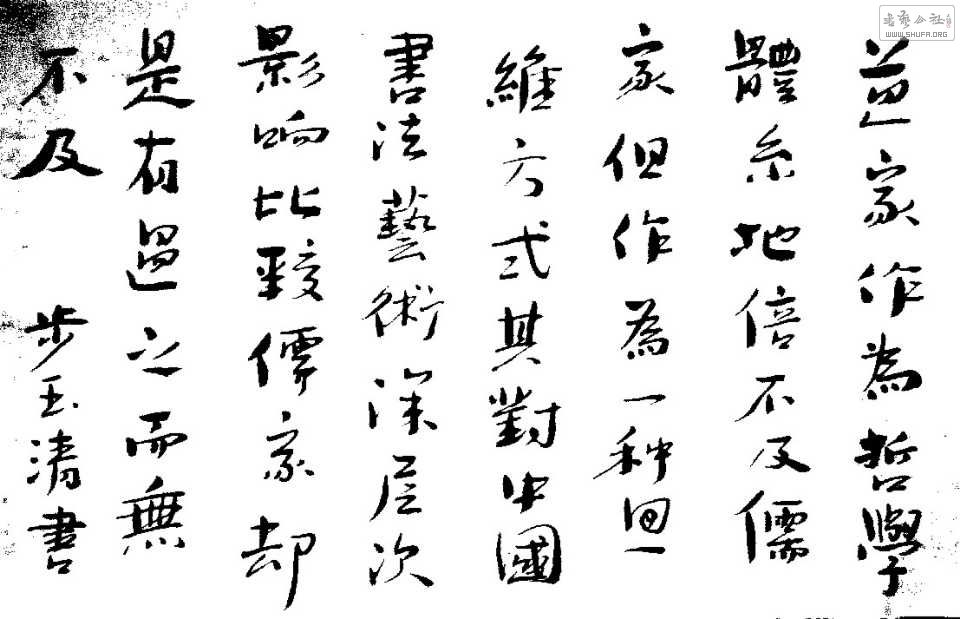 道家作為哲學
體系地倍不及儒
家但作為一种思
維方式其對中國
書法藝術深层次
影响比較儒家却
是有過之而無
不及 步玉清書
書藝公社
WWW.SHUFA.ORG